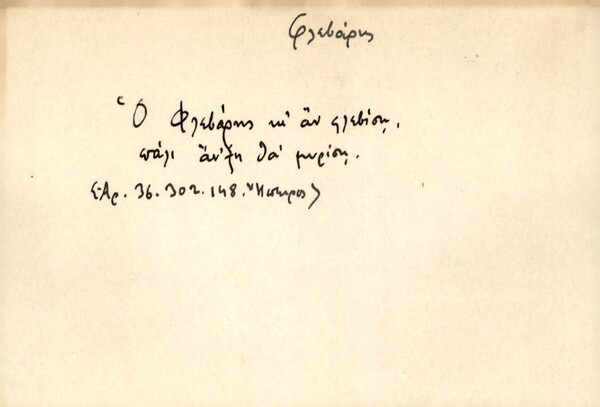 Φλεβάρης
Ὁ Φλεβάρης κι' ἂν φλεβίση,
πάλι ἄν'ξη θὰ μυρίση.
Ἀρ. 36. 302. 148. Ἤπειρος